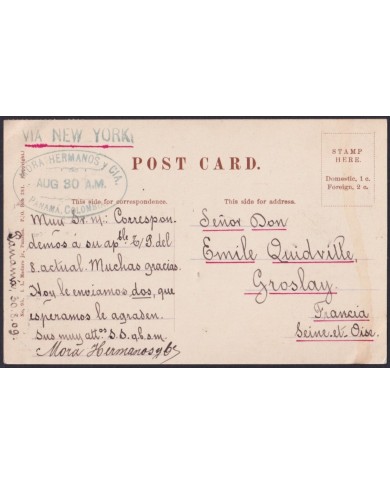 VIA NEW YORK,
MORA HERMANOS Y CIA.
AUG 30 A.M.
PANAMÁ, COLOMBIA
POST CARD.
STAMP
HERE.
Domestic, 1 c.
Foreign, 2 c.
This side for correspondence.
This side for address.
Muy Sr. m/: Correspon-
demos á su apble T/P. del
8. actual. Muchas gracias.
Hoy le enviamos dos, que
esperamos le agraden.
Sus muy attos. S.S. q.b.s.m.
Mora Hermanos y Ca
Señor Don
Emile Quidville,
Groslay.
Francia
Seine-et-Oise.
Panamá, 30.8.09.